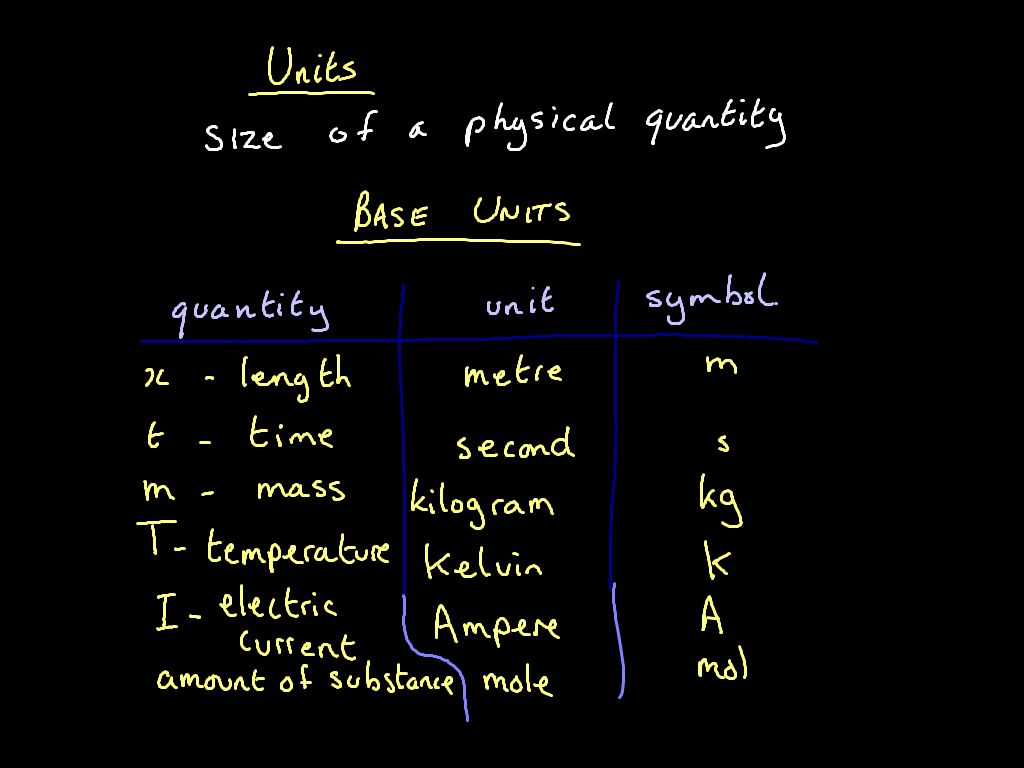 Units
size of a physical quantity
BASE UNITS
quantity unit symbol
x - length metre m
t - time second s
m - mass kilogram kg
T - temperature Kelvin K
I - electric current Ampere A
amount of substance mole mol